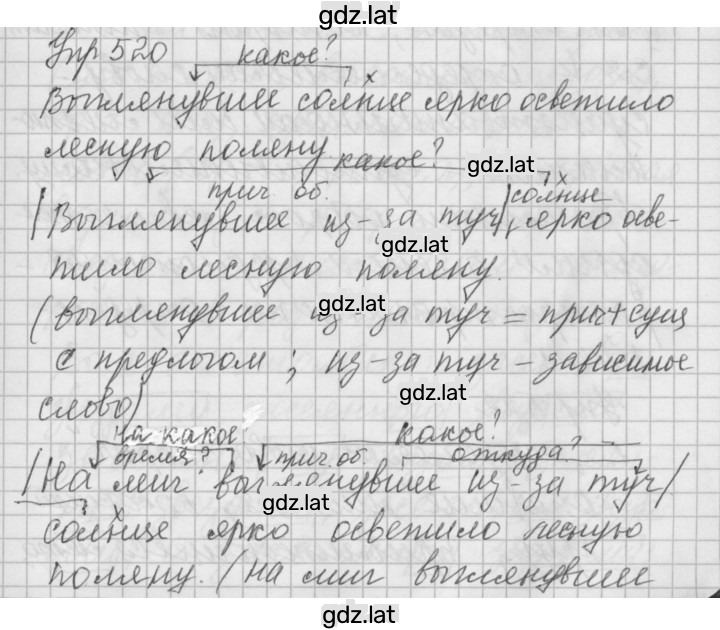 gdz.lat
Упр 520 какое?
x
Выглянувшее солнце ярко осветило
лесную поляну. какое? gdz.lat
прич. об. солнце x
|Выглянувшее из-за туч|, ярко осве-
gdz.lat
тило лесную поляну.
gdz.lat
(выглянувшее из-за туч = прич + сущ
с предлогом; из-за туч - зависимое
gdz.lat
слово)
на какое какое?
время? прич. об. откуда?
|На миг выглянувшее из-за туч|
gdz.lat
x
солнце ярко осветило лесную
поляну. (на миг выглянувшее
gdz.lat